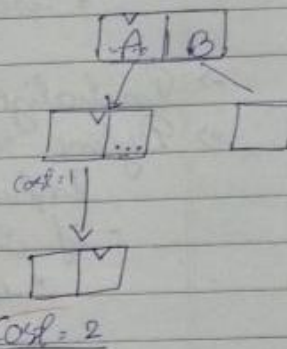 A B
...
Cost = 1
Cost = 2